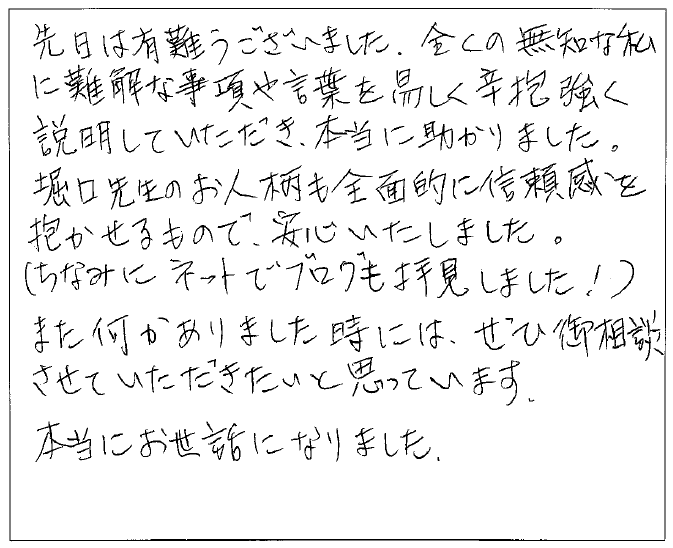 先日は有難うございました. 全くの無知な私
に難解な事項や言葉を易しく辛抱強く
説明していただき、本当に助かりました。
堀口先生のお人柄も全面的に信頼感を
抱かせるもので、安心いたしました。
(ちなみにネットでブログも拝見しました！)
また何かありました時には、ぜひ御相談
させていただきたいと思っています.
本当にお世話になりました.